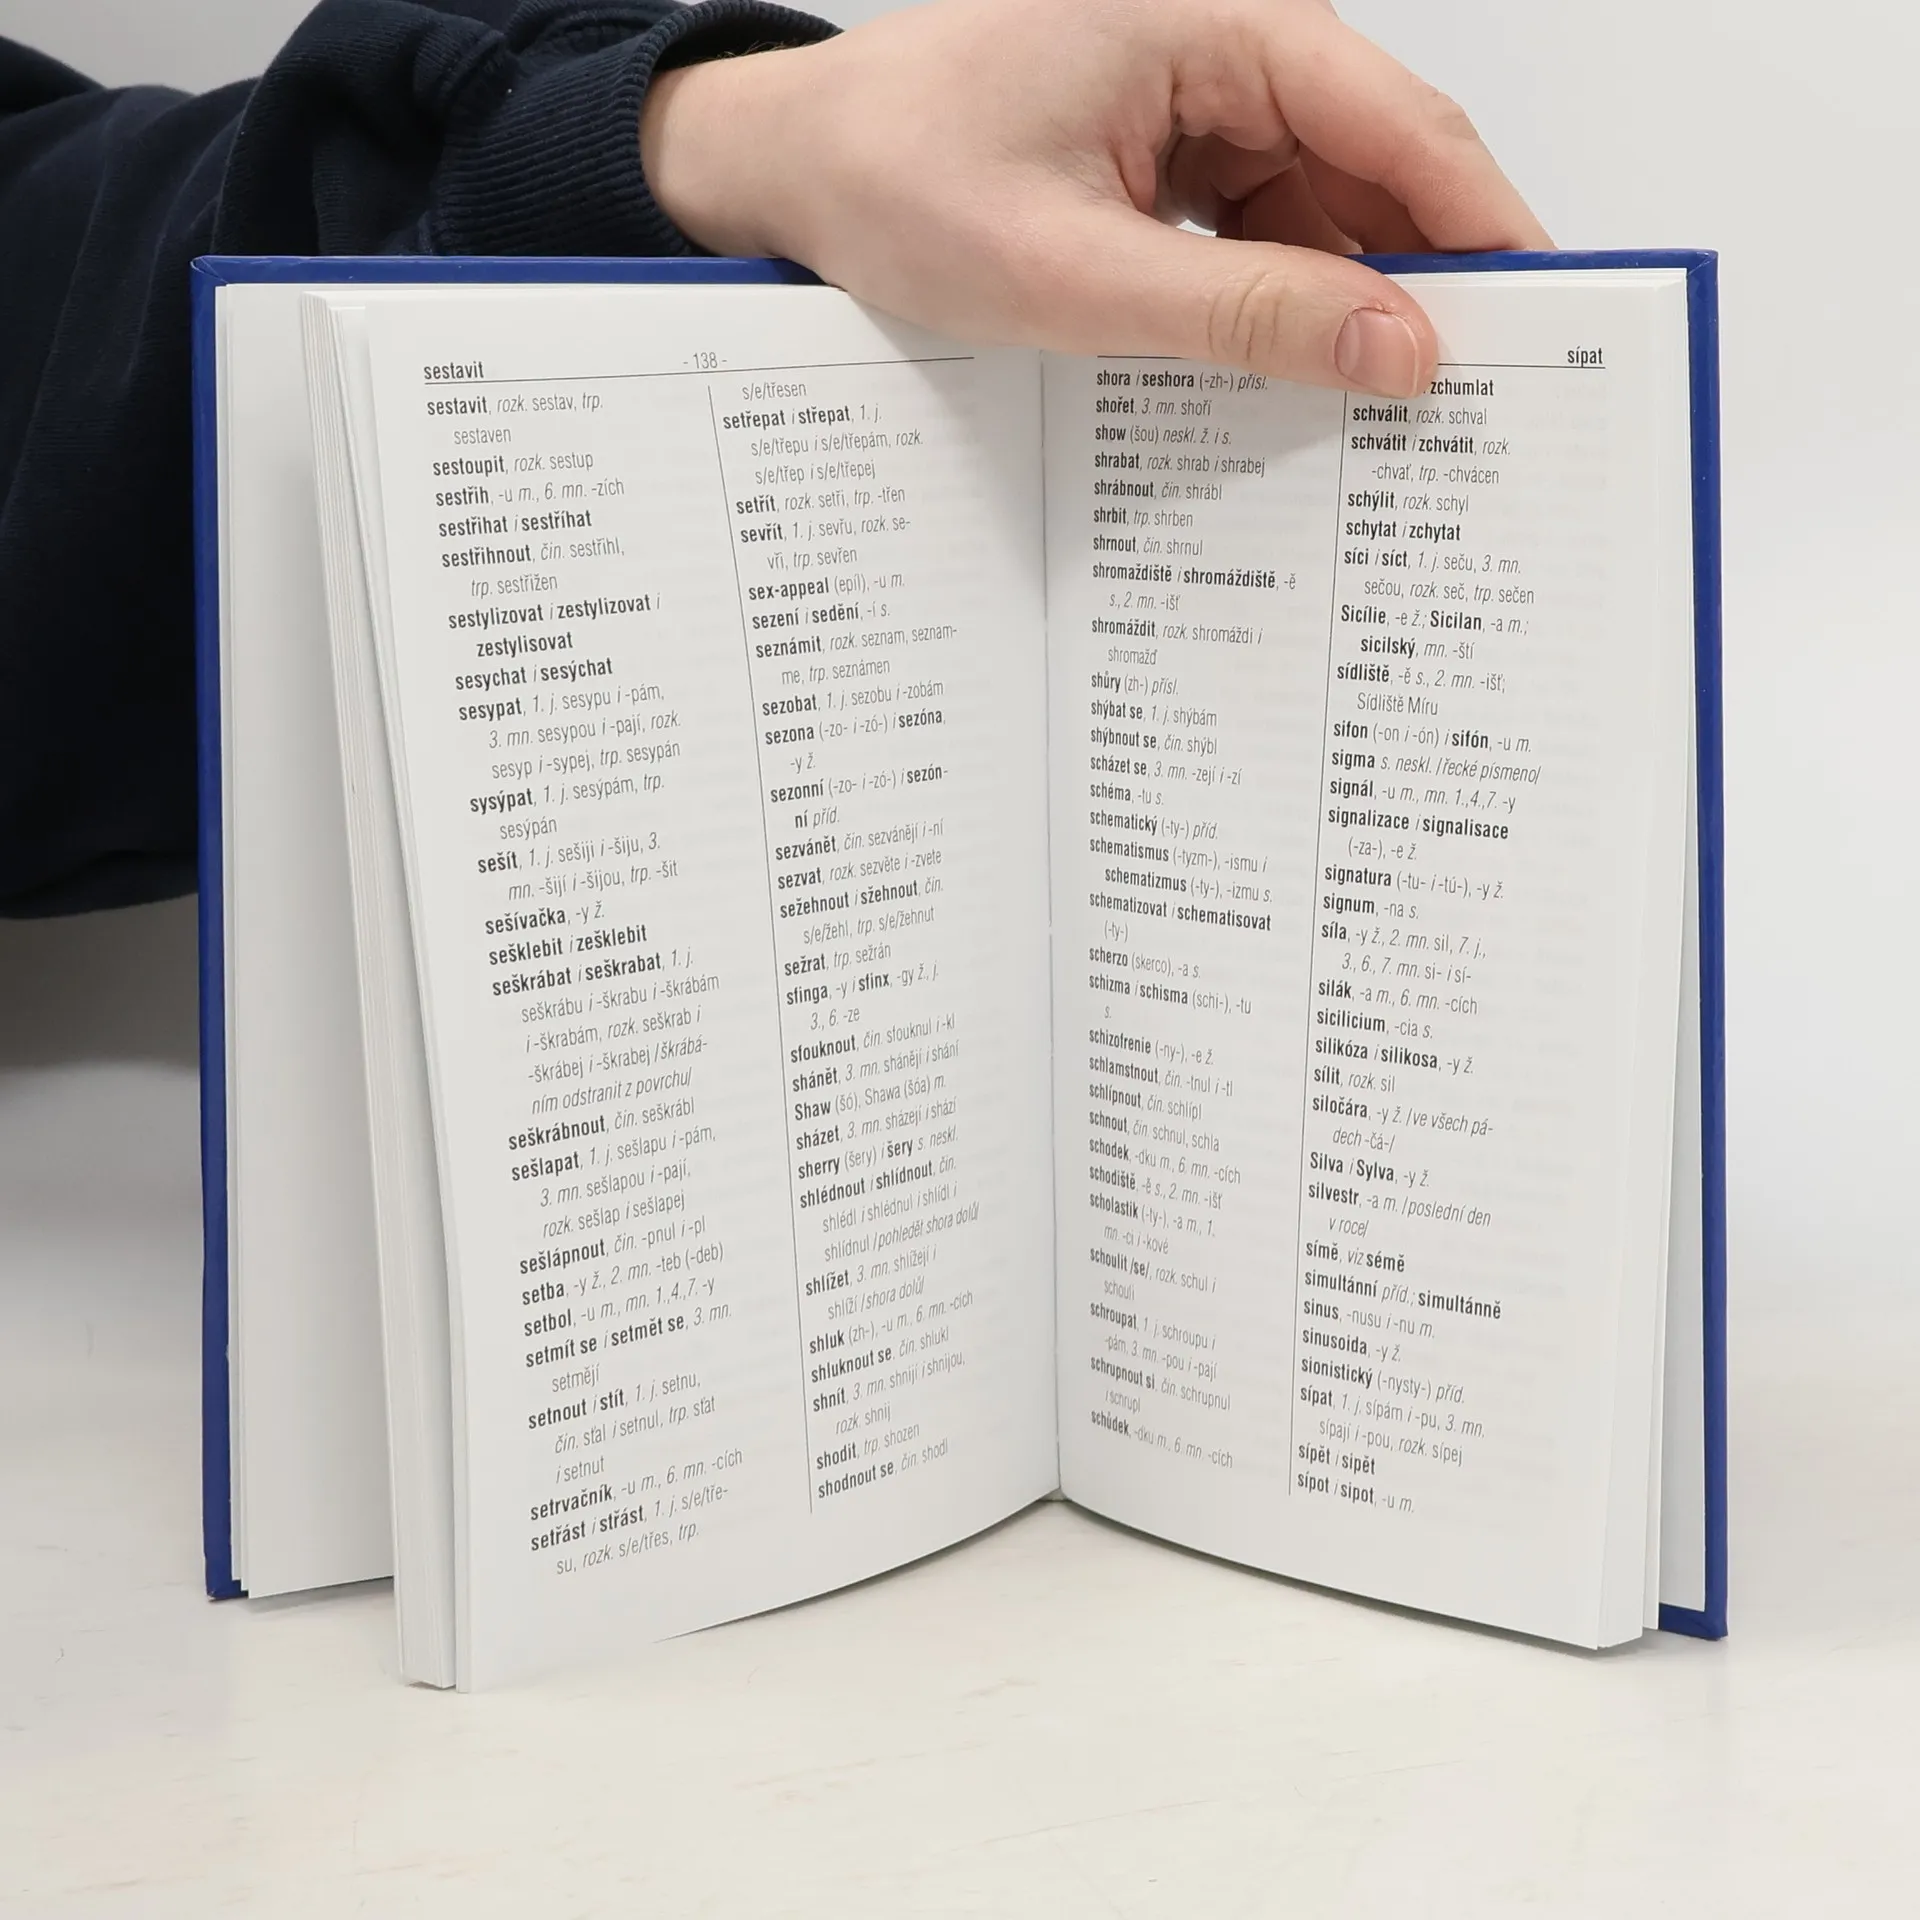 sestavit
- 138 -
sestavit, rozk. sestav, trp.
sestaven
sestoupit, rozk. sestup
sestřih, -u m., 6. mn. -zích
sestřihat i sestříhat
sestřihnout, čin. sestřihl,
trp. sestřižen
sestylizovat i zestylizovat i
zestylisovat
sesychat i sesýchat
sesypat, 1. j. sesypu i -pám,
3. mn. sesypou i -pají, rozk.
sesyp i -sypej, trp. sesypán
sysýpat, 1. j. sesýpám, trp.
sesýpán
sešít, 1. j. sešiji i -šiju, 3.
mn. -šijí i -šijou, trp. -šit
sešívačka, -y ž.
sešklebit i zešklebit
seškrábat i seškrabat, 1. j.
seškrábu i -škrabu i -škrábám
i -škrabám, rozk. seškrab i
-škrábej i -škrabej /škrábá-
ním odstranit z povrchu/
seškrábnout, čin. seškrábl
sešlapat, 1. j. sešlapu i -pám,
3. mn. sešlapou i -pají,
rozk. sešlap i sešlapej
sešlápnout, čin. -pnul i -pl
setba, -y ž., 2. mn. -teb (-deb)
setbol, -u m., mn. 1.,4.,7. -y
setmít se i setmět se, 3. mn.
setmějí
setnout i stít, 1. j. setnu,
čin. sťal i setnul, trp. sťat
i setnut
setrvačník, -u m., 6. mn. -cích
setřást i střást, 1. j. s/e/tře-
su, rozk. s/e/třes, trp.
s/e/třesen
setřepat i střepat, 1. j.
s/e/třepu i s/e/třepám, rozk.
s/e/třep i s/e/třepej
setřít, rozk. setři, trp. -třen
sevřít, 1. j. sevřu, rozk. se-
vři, trp. sevřen
sex-appeal (epíl), -u m.
sezení i sedění, -í s.
seznámit, rozk. seznam, seznam-
me, trp. seznámen
sezobat, 1. j. sezobu i -zobám
sezona (-zo- i -zó-) i sezóna,
-y ž.
sezonní (-zo- i -zó-) i sezón-
ní příd.
sezvánět, čin. sezvánějí i -ní
sezvat, rozk. sezvěte i -zvete
sežehnout i sžehnout, čin.
s/e/žehl, trp. s/e/žehnut
sežrat, trp. sežrán
sfinga, -y i sfinx, -gy ž., j.
3., 6. -ze
sfouknout, čin. sfouknul i -kl
shánět, 3. mn. shánějí i shání
Shaw (šó), Shawa (šóa) m.
sházet, 3. mn. sházejí i shází
sherry (šery) i šery s. neskl.
shlédnout i shlídnout, čin.
shlédl i shlédnul i shlídl i
shlídnul /pohleděl shora dolů/
shlížet, 3. mn. shlížejí i
shlíží /shora dolů/
shluk (zh-), -u m., 6. mn. -cích
shluknout se, čin. shlukl
shnít, 3. mn. shnijí i shnijou,
rozk. shnij
shodit, trp. shozen
shodnout se, čin. shodl
sípat
shora i seshora (-zh-) přísl.
shořet, 3. mn. shoří
show (šou) neskl. ž. i s.
shrabat, rozk. shrab i shrabej
shrábnout, čin. shrábl
shrbit, trp. shrben
shrnout, čin. shrnul
shromaždiště i shromáždiště, -ě
s., 2. mn. -išť
shromáždit, rozk. shromáždi i
shromažď
shůry (zh-) přísl.
shýbat se, 1. j. shýbám
shýbnout se, čin. shýbl
scházet se, 3. mn. -zejí i -zí
schéma, -tu s.
schematický (-ty-) příd.
schematismus (-tyzm-), -ismu i
schematizmus (-ty-), -izmu s.
schematizovat i schematisovat
(-ty-)
scherzo (skerco), -a s.
schizma i schisma (schi-), -tu
s.
schizofrenie (-ny-), -e ž.
schlamstnout, čin. -tnul i -tl
schlípnout, čin. schlípl
schnout, čin. schnul, schla
schodek, -dku m., 6. mn. -cích
schodiště, -ě s., 2. mn. -išť
scholastik (-ty-), -a m., 1.
mn. -ci i -kové
schoulit /se/, rozk. schul i
schouli
schroupat, 1. j. schroupu i
-pám, 3. mn. -pou i -pají
schrupnout si, čin. schrupnul
i schrupl
schůdek, -dku m., 6. mn. -cích
zchumlat
schválit, rozk. schval
schvátit i zchvátit, rozk.
-chvať, trp. -chvácen
schýlit, rozk. schyl
schytat i zchytat
síci i síct, 1. j. seču, 3. mn.
sečou, rozk. seč, trp. sečen
Sicílie, -e ž.; Sicilan, -a m.;
sicilský, mn. -ští
sídliště, -ě s., 2. mn. -išť;
Sídliště Míru
sifon (-on i -ón) i sifón, -u m.
sigma s. neskl. /řecké písmeno/
signál, -u m., mn. 1.,4.,7. -y
signalizace i signalisace
(-za-), -e ž.
signatura (-tu- i -tú-), -y ž.
signum, -na s.
síla, -y ž., 2. mn. sil, 7. j.,
3., 6., 7. mn. si- i sí-
silák, -a m., 6. mn. -cích
sicilicium, -cia s.
silikóza i silikosa, -y ž.
sílit, rozk. sil
siločára, -y ž. /ve všech pá-
dech -čá-/
Silva i Sylva, -y ž.
silvestr, -a m. /poslední den
v roce/
símě, viz sémě
simultánní příd.; simultánně
sinus, -nusu i -nu m.
sinusoida, -y ž.
sionistický (-nysty-) příd.
sípat, 1. j. sípám i -pu, 3. mn.
sípají i -pou, rozk. sípej
sípět i sipět
sípot i sipot, -u m.